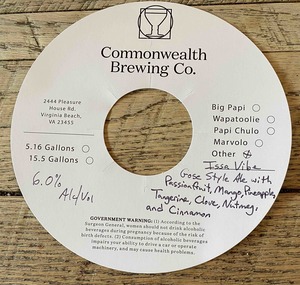 Commonwealth
Brewing Co.
2444 Pleasure
House Rd.
Virginia Beach,
VA 23455
5.16 Gallons
15.5 Gallons
6.0%
Alc/Vol
Big Papi
Wapatoolie
Papi Chulo
Marvolo
Other
Issa Vibe
Gose Style Ale with
Passionfruit, Mango, Pineapple,
Tangerine, Clove, Nutmeg,
and Cinnamon
GOVERNMENT WARNING: (1) According to the
Surgeon General, women should not drink alcoholic
beverages during pregnancy because of the risk of
birth defects. (2) Consumption of alcoholic beverages
impairs your ability to drive a car or operate
machinery, and may cause health problems.